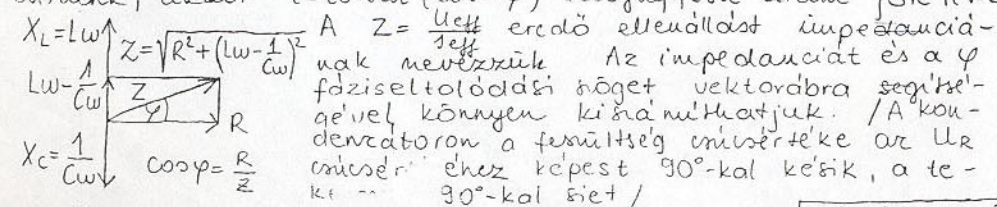 X_L=Lω Z=√(R²+(Lω-1/Cω)²) A Z= Ueff/Ieff eredő ellenállást impedanciá-
Lω-1/Cω Z φ nak nevezzük Az impedanciát és a φ
fáziseltolódási szöget vektorábra segítsé-
R gével könnyen kiszámíthatjuk. /A kon-
X_C=1/Cω cosφ=R/Z denzátoron a feszültség csúcsértéke az U_R
csúcsér éhez képest 90°-kal késik, a te-
90°-kal siet/